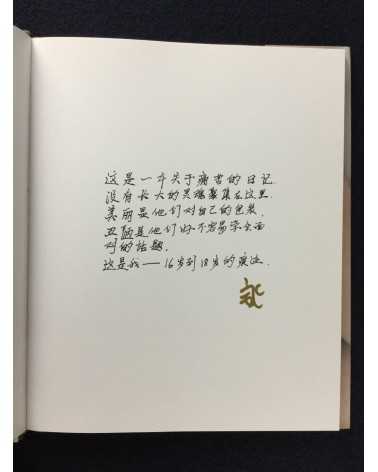 这是一本关于病者的日记.
没有长大的灵魂聚集在这里.
美丽是他们对自己的包裹.
丑陋是他们好不容易学会面
对的话题.
这是我——16岁到18岁的痕迹.